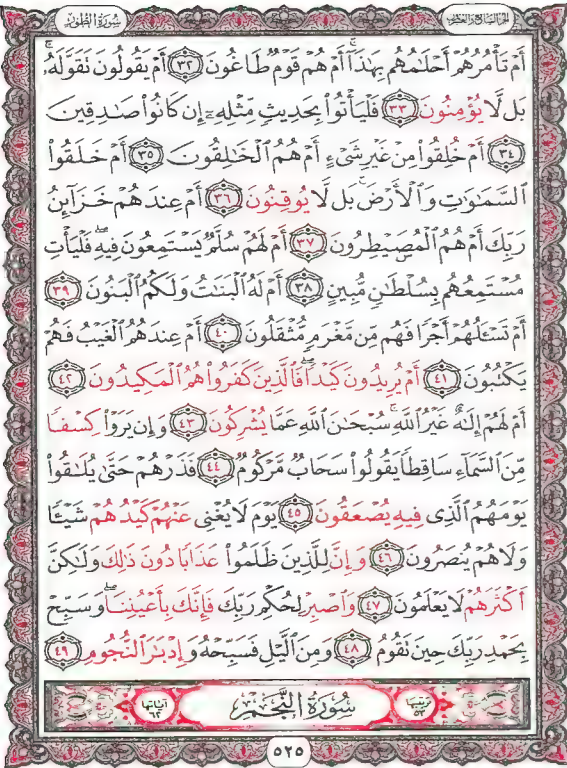 الجزء السابع والعشرون سُورَةُ الطُّورِ
أَمْ تَأْمُرُهُمْ أَحْلَٰمُهُم بِهَٰذَآ ۚ أَمْ هُمْ قَوْمٌ طَاغُونَ ٣٢ أَمْ يَقُولُونَ تَقَوَّلَهُۥ ۚ
بَل لَّا يُؤْمِنُونَ ٣٣ فَلْيَأْتُوا۟ بِحَدِيثٍ مِّثْلِهِۦٓ إِن كَانُوا۟ صَٰدِقِينَ
٣٤ أَمْ خُلِقُوا۟ مِنْ غَيْرِ شَىْءٍ أَمْ هُمُ الْخَٰلِقُونَ ٣٥ أَمْ خَلَقُوا۟
السَّمَٰوَٰتِ وَالْأَرْضَ ۚ بَل لَّا يُوقِنُونَ ٣٦ أَمْ عِندَهُمْ خَزَآئِنُ
رَبِّكَ أَمْ هُمُ الْمُصَۣيْطِرُونَ ٣٧ أَمْ لَهُمْ سُلَّمٌ يَسْتَمِعُونَ فِيهِ ۖ فَلْيَأْتِ
مُسْتَمِعُهُم بِسُلْطَٰنٍ مُّبِينٍ ٣٨ أَمْ لَهُ الْبَنَٰتُ وَلَكُمُ الْبَنُونَ ٣٩
أَمْ تَسْـَٔلُهُمْ أَجْرًا فَهُم مِّن مَّغْرَمٍ مُّثْقَلُونَ ٤٠ أَمْ عِندَهُمُ الْغَيْبُ فَهُمْ
يَكْتُبُونَ ٤١ أَمْ يُرِيدُونَ كَيْدًا ۖ فَالَّذِينَ كَفَرُوا۟ هُمُ الْمَكِيدُونَ ٤٢
أَمْ لَهُمْ إِلَٰهٌ غَيْرُ اللَّهِ ۚ سُبْحَٰنَ اللَّهِ عَمَّا يُشْرِكُونَ ٤٣ وَإِن يَرَوْا۟ كِسْفًا
مِّنَ السَّمَآءِ سَاقِطًا يَقُولُوا۟ سَحَابٌ مَّرْكُومٌ ٤٤ فَذَرْهُمْ حَتَّىٰ يُلَٰقُوا۟
يَوْمَهُمُ الَّذِى فِيهِ يُصْعَقُونَ ٤٥ يَوْمَ لَا يُغْنِى عَنْهُمْ كَيْدُهُمْ شَيْـًٔا
وَلَا هُمْ يُنصَرُونَ ٤٦ وَإِنَّ لِلَّذِينَ ظَلَمُوا۟ عَذَابًا دُونَ ذَٰلِكَ وَلَٰكِنَّ
أَكْثَرَهُمْ لَا يَعْلَمُونَ ٤٧ وَاصْبِرْ لِحُكْمِ رَبِّكَ فَإِنَّكَ بِأَعْيُنِنَا ۖ وَسَبِّحْ
بِحَمْدِ رَبِّكَ حِينَ تَقُومُ ٤٨ وَمِنَ الَّيْلِ فَسَبِّحْهُ وَإِدْبَٰرَ النُّجُومِ ٤٩
ترتيبها ٥٣ سُورَةُ النَّجْمِ آياتها ٦٢
٥٢٥